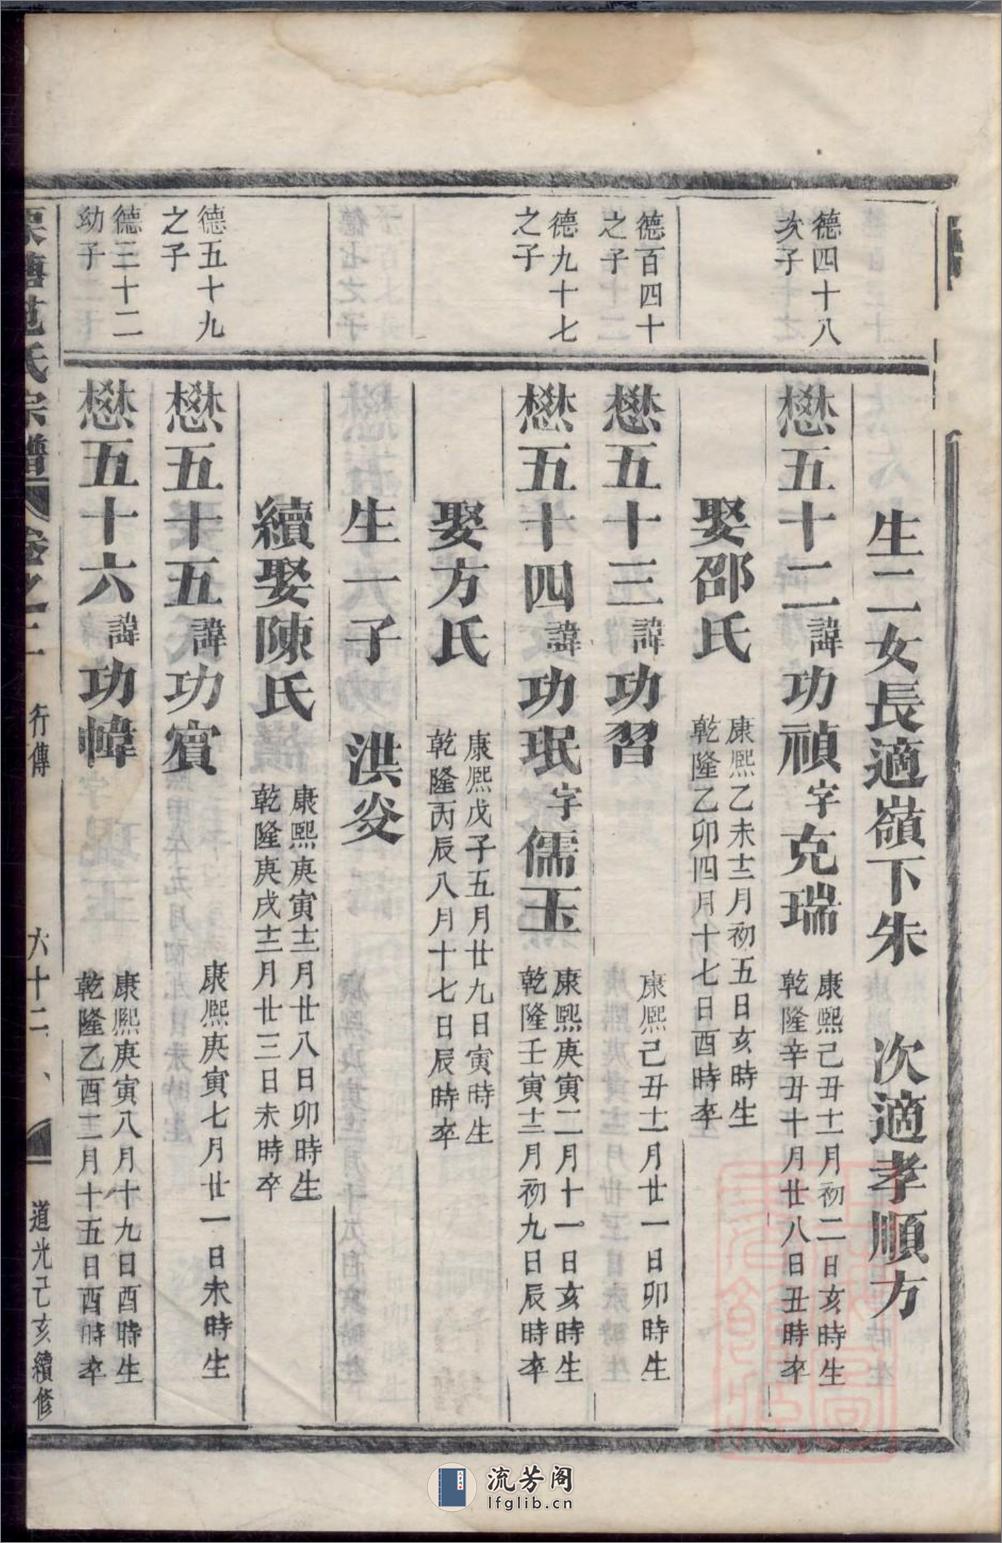 生二女長適嶺下朱 次適孝順方
德四十八
次子
懋五十二諱功禎字克瑞
康熙己丑十一月初二日亥時生
乾隆辛丑十月廿八日丑時卒
娶邵氏
康熙乙未十二月初五日亥時生
乾隆乙卯四月十七日酉時卒
德百四十
之子
懋五十三諱功習
康熙己丑十一月廿一日卯時生
德九十七
之子
懋五十四諱功珉字儒玉
康熙庚寅二月十一日亥時生
乾隆壬寅十二月初九日辰時卒
娶方氏
康熙戊子五月廿九日寅時生
乾隆丙辰八月十七日辰時卒
生一子 洪炎
續娶陳氏
康熙庚寅十二月廿八日卯時生
乾隆庚戌十二月廿三日未時卒
德五十九
之子
懋五十五諱功賓
康熙庚寅七月廿一日未時生
德三十二
幼子
懋五十六諱功幃
康熙庚寅八月十九日酉時生
乾隆乙酉十二月十五日酉時卒
范氏宗譜 卷之二 行傳 六十二 道光己亥續修
流芳阁
lfglib.cn